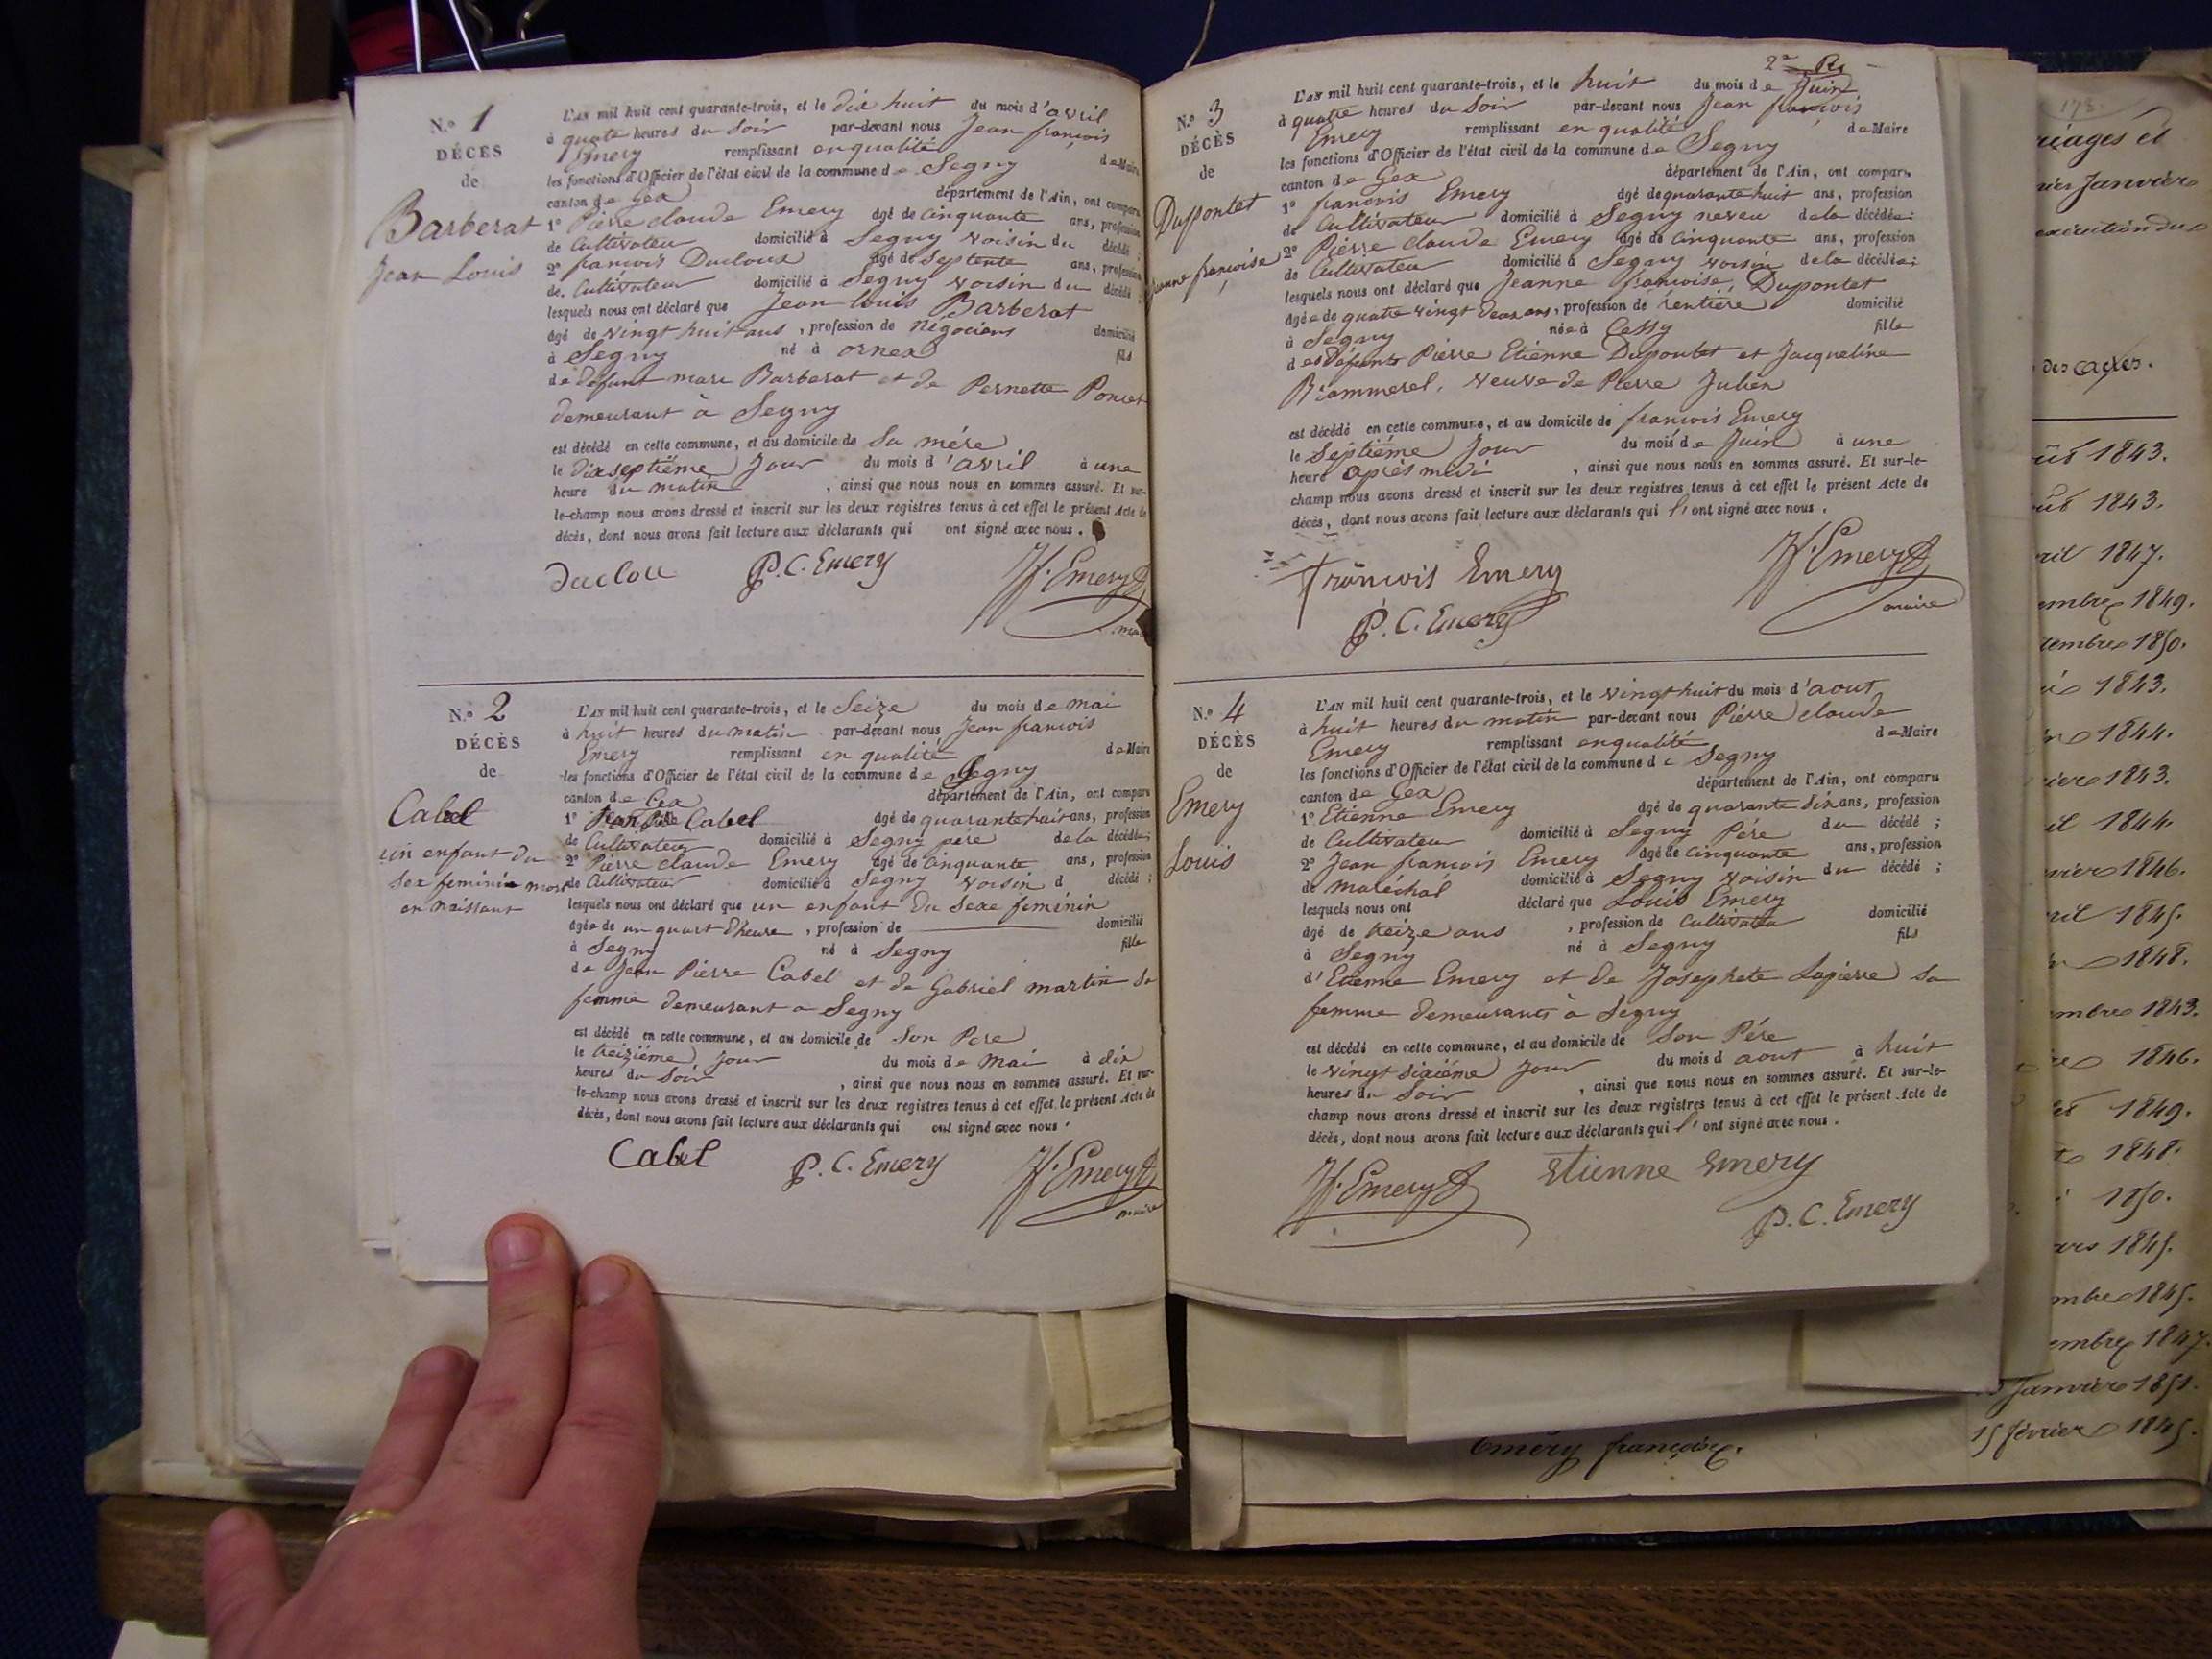 N.° 1
DÉCÈS
de
Barberat
Jean Louis
L'AN mil huit cent quarante-trois, et le dix huit du mois d'avril
à quatre heures du Soir par-devant nous Jean françois
Emery remplissant en qualité de Maire
les fonctions d'Officier de l'état civil de la commune de Segny
canton de Gex département de l'Ain, ont comparu
1° Pierre claude Emery âgé de cinquante ans, profession
de Cultivateur domicilié à Segny voisin du décédé;
2° francois Ducloux âgé de Septente ans, profession
de Cultivateur domicilié à Segny voisin du décédé;
lesquels nous ont déclaré que Jean Louis Barberat
âgé de vingt huit ans, profession de Négociens domicilié
à Segny né à ornex fils
de defunt marc Barberat et de Pernette Poncet
demeurant à Segny
est décédé en cette commune, et au domicile de Sa mére
le dixseptiéme Jour du mois d'avril à une
heure du matin, ainsi que nous nous en sommes assuré. Et sur-
le-champ nous avons dressé et inscrit sur les deux registres tenus à cet effet le présent Acte de
décès, dont nous avons fait lecture aux déclarants qui ont signé avec nous.
Duclou P. C. Emery Jf. Emery
N.° 2
DÉCÈS
de
Cabel
un enfant du
Sex feminin mort
en naissant
L'AN mil huit cent quarante-trois, et le Seize du mois de mai
à huit heures du matin par-devant nous Jean francois
Emery remplissant en qualité de Maire
les fonctions d'Officier de l'état civil de la commune de Segny
canton de Gex département de l'Ain, ont comparu
1° Cabel âgé de quarante huit ans, profession
de Cultivateur domicilié à Segny pére de la décédée;
2° Pierre claude Emery âgé de Cinquante ans, profession
de Cultivateur domicilié à Segny voisin d décédé;
lesquels nous ont déclaré que un enfant du Sexe feminin
âgée de un quart d'heure, profession de domicilié
à Segny né à Segny fille
de Jean Pierre Cabel et de Gabriel martin Sa
femme demeurant a Segny
est décédé en cette commune, et au domicile de Son Pere
le treiziéme Jour du mois de Mai à dix
heures du Soir, ainsi que nous nous en sommes assuré. Et sur-
le-champ nous avons dressé et inscrit sur les deux registres tenus à cet effet le présent Acte de
décès, dont nous avons fait lecture aux déclarants qui ont signé avec nous.
Cabel P. C. Emery Jf. Emery
maire
N.° 3
DÉCÈS
de
Dupontet
Jeanne françoise
L'AN mil huit cent quarante-trois, et le huit du mois de Juin
à quatre heures du Soir par-devant nous Jean françois
Emery remplissant en qualité de Maire
les fonctions d'Officier de l'état civil de la commune de Segny
canton de Gex département de l'Ain, ont comparu
1° francois Emery âgé de quarante huit ans, profession
de Cultivateur domicilié à Segny neveu de la décédée;
2° Pierre claude Emery âgé de Cinquante ans, profession
de Cultivateur domicilié à Segny voisin de la décédée;
lesquels nous ont déclaré que Jeanne francoise Dupontet
âgée de quatre vingt deux ans, profession de rentiére domicilié
à Segny née à Cessy fille
des défunts Pierre Etienne Dupontet et Jacqueline
veuve de Pierre Julien
est décédé en cette commune, et au domicile de francois Emery
le Septiéme Jour du mois de Juin à une
heure aprés midi, ainsi que nous nous en sommes assuré. Et sur-le-
champ nous avons dressé et inscrit sur les deux registres tenus à cet effet le présent Acte de
décès, dont nous avons fait lecture aux déclarants qui l'ont signé avec nous.
francois Emery Jf. Emery
maire
P. C. Emery
N.° 4
DÉCÈS
de
Emery
Louis
L'AN mil huit cent quarante-trois, et le vingt huit du mois d'aout
à huit heures du matin par-devant nous Pierre claude
Emery remplissant en qualité de Maire
les fonctions d'Officier de l'état civil de la commune de Segny
canton de Gex département de l'Ain, ont comparu
1° Etienne Emery âgé de quarante Six ans, profession
de Cultivateur domicilié à Segny Pére du décédé;
2° Jean francois Emery âgé de Cinquante ans, profession
de maréchal domicilié à Segny voisin du décédé;
lesquels nous ont déclaré que Louis Emery
âgé de treize ans, profession de Cultivateu domicilié
à Segny né à Segny fils
d'Etienne Emery et de Josephete Lapierre Sa
femme demeurants à Segny
est décédé en cette commune, et au domicile de Son Pére
le vingt Sixiéme Jour du mois d aout à huit
heures du Soir, ainsi que nous nous en sommes assuré. Et sur-le-
champ nous avons dressé et inscrit sur les deux registres tenus à cet effet le présent Acte de
décès, dont nous avons fait lecture aux déclarants qui l'ont signé avec nous.
Jf. Emery Etienne Emery
P. C. Emery
des actes.
1843.
1843.
1847.
1849.
1850.
1843.
1844.
1843.
1844.
1846.
1845.
1848.
1843.
1846.
1849.
1848.
1850.
1845.
1845.
1847.
Janvier 1851.
Emery françoise. 15 février 1845.